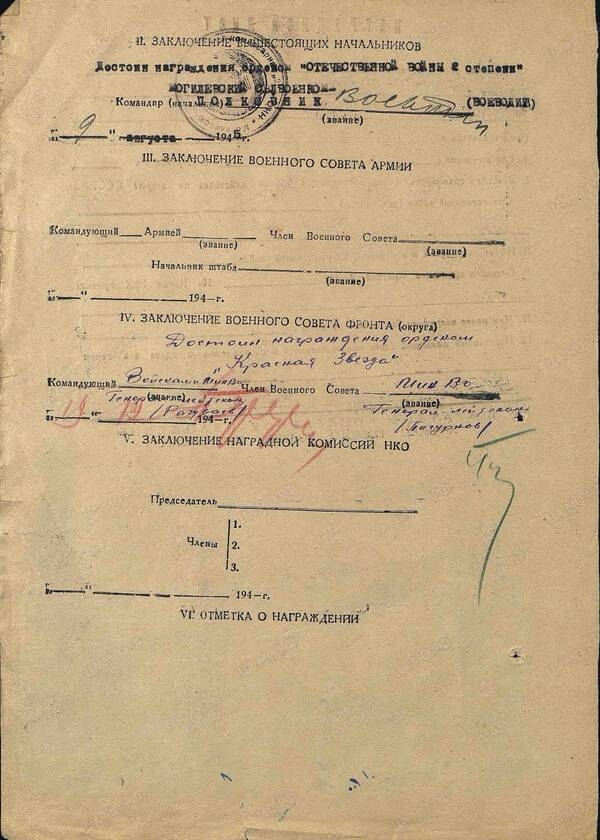 II. ЗАКЛЮЧЕНИЕ ВЫШЕСТОЯЩИХ НАЧАЛЬНИКОВ
Достоин награждения орденом "ОТЕЧЕСТВЕННОЙ ВОЙНЫ 2 степени"
МОГИЛЕВСКИЙ ОБЛВОЕНКОМ—
Командир (начальник) ПОЛКОВНИК (ВОЕВОДИН)
(звание)
"9" августа 1945 г.
III. ЗАКЛЮЧЕНИЕ ВОЕННОГО СОВЕТА АРМИИ
Командующий Армией Член Военного Совета
(звание) (звание)
Начальник штаба
(звание)
" " 194–г.
IV. ЗАКЛЮЧЕНИЕ ВОЕННОГО СОВЕТА ФРОНТА (округа)
Достоин награждения орденом
"Красная Звезда"
Командующий Войсками МинВО Член Военного Совета МинВО
(звание) (звание)
Генерал-лейтенант Генерал-лейтенант
" " 194–г.
V. ЗАКЛЮЧЕНИЕ НАГРАДНОЙ КОМИССИИ НКО
Председатель
Члены
1.
2.
3.
" " 194–г.
VI. ОТМЕТКА О НАГРАЖДЕНИИ